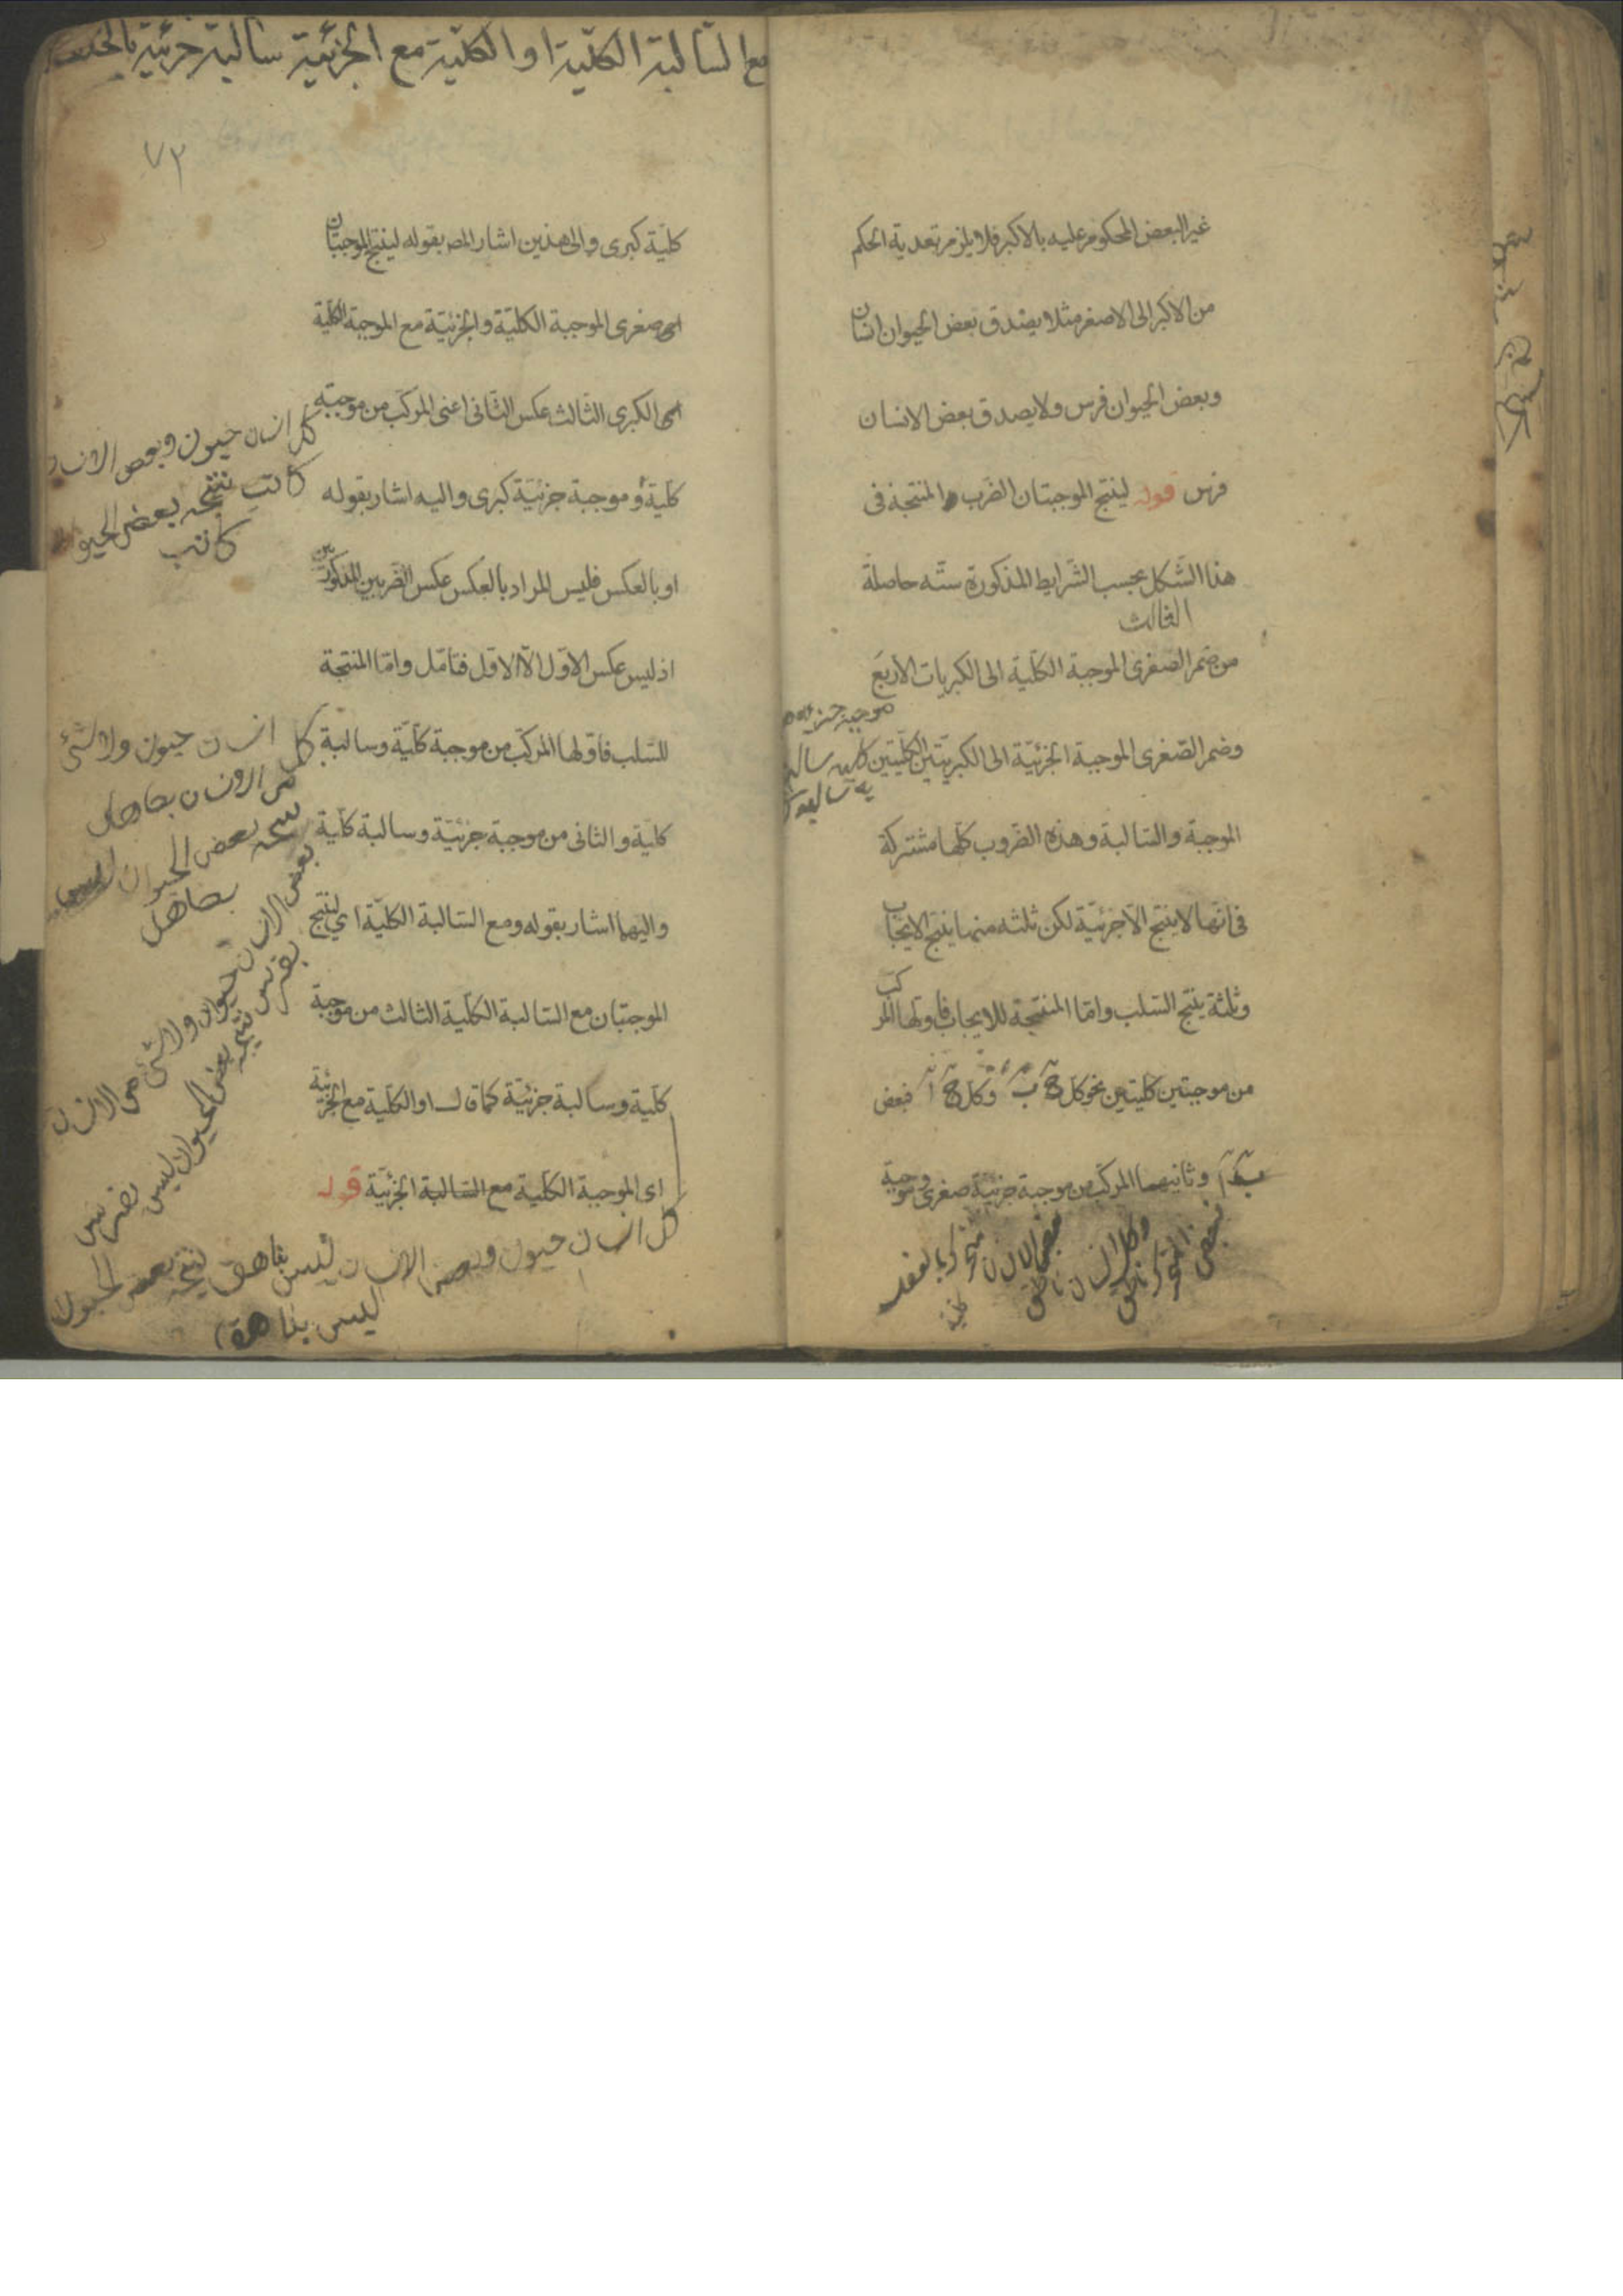 غير البعض المحكوم عليه بالاكبر فلا يلزم تعدية الحكم
من الاكبر الى الاصغر مثلا يصدق بعض الحيوان انسان
وبعض الحيوان فرس ولا يصدق بعض الانسان
فرس قوله لينتج الموجبتان الضرب المنتجة فى
هذا الشكل بحسب الشرايط المذكورة ستة حاصلة
الثالث
من ضم الصغرى الموجبة الكلية الى الكبريات الاربع
موجبة جزئية
وضم الصغرى الموجبة الجزئية الى الكبريتين الكليتين كلية سالبة
الموجبة والسالبة وهذه الضروب كلها مشتركة
فى انها لا ينتج الا جزئية لكن ثلثه منها ينتج الايجاب
وثلثة ينتج السلب واما المنتجة للايجاب فاولها المركب
من موجبتين كليتين نحو كل ج ب وكل ج ا فبعض
ب ا وثانيهما المركب من موجبة جزئية صغرى وموجبة
وكل انسان ناطق
مع السالبة الكلية او الكلية مع الجزئية سالبة جزئية بالخلف
٧٢
كلية كبرى والى هذين اشار المصـ بقوله لينتج الموجبتان
اى صغرى الموجبة الكلية والجزئية مع الموجبة الكلية
اى الكبرى الثالث عكس الثانى اعنى المركب من موجبة
كلية و موجبة جزئية كبرى واليه اشار بقوله
او بالعكس فليس المراد بالعكس عكس الضربين المذكورين
اذ ليس عكس الاول الا الاول فتأمل واما المنتجة
للسلب فاولها المركب من موجبة كلية وسالبة
كلية والثانى من موجبة جزئية وسالبة كلية
واليهما اشار بقوله ومع السالبة الكلية اي لينتج
الموجبتان مع السالبة الكلية الثالث من موجبة
كلية وسالبة جزئية كما قال او الكلية مع الجزئية
اى الموجبة الكلية مع السالبة الجزئية قوله
كل انسان حيوان وبعض الانسان
كاتب نتيجه بعض الحيوان
كاتب
كل انسان حيوان ولا شئ
من الانسان بصاهل
نتيجه بعض الحيوان ليس
بصاهل
بعض الانسان حيوان ولا شئ من الانسان
بفرس نتيجه بعض الحيوان ليس بفرس
كل انسان حيوان وبعض الانسان ليس بناهق نتيجه بعض الحيوان
ليس بناهق